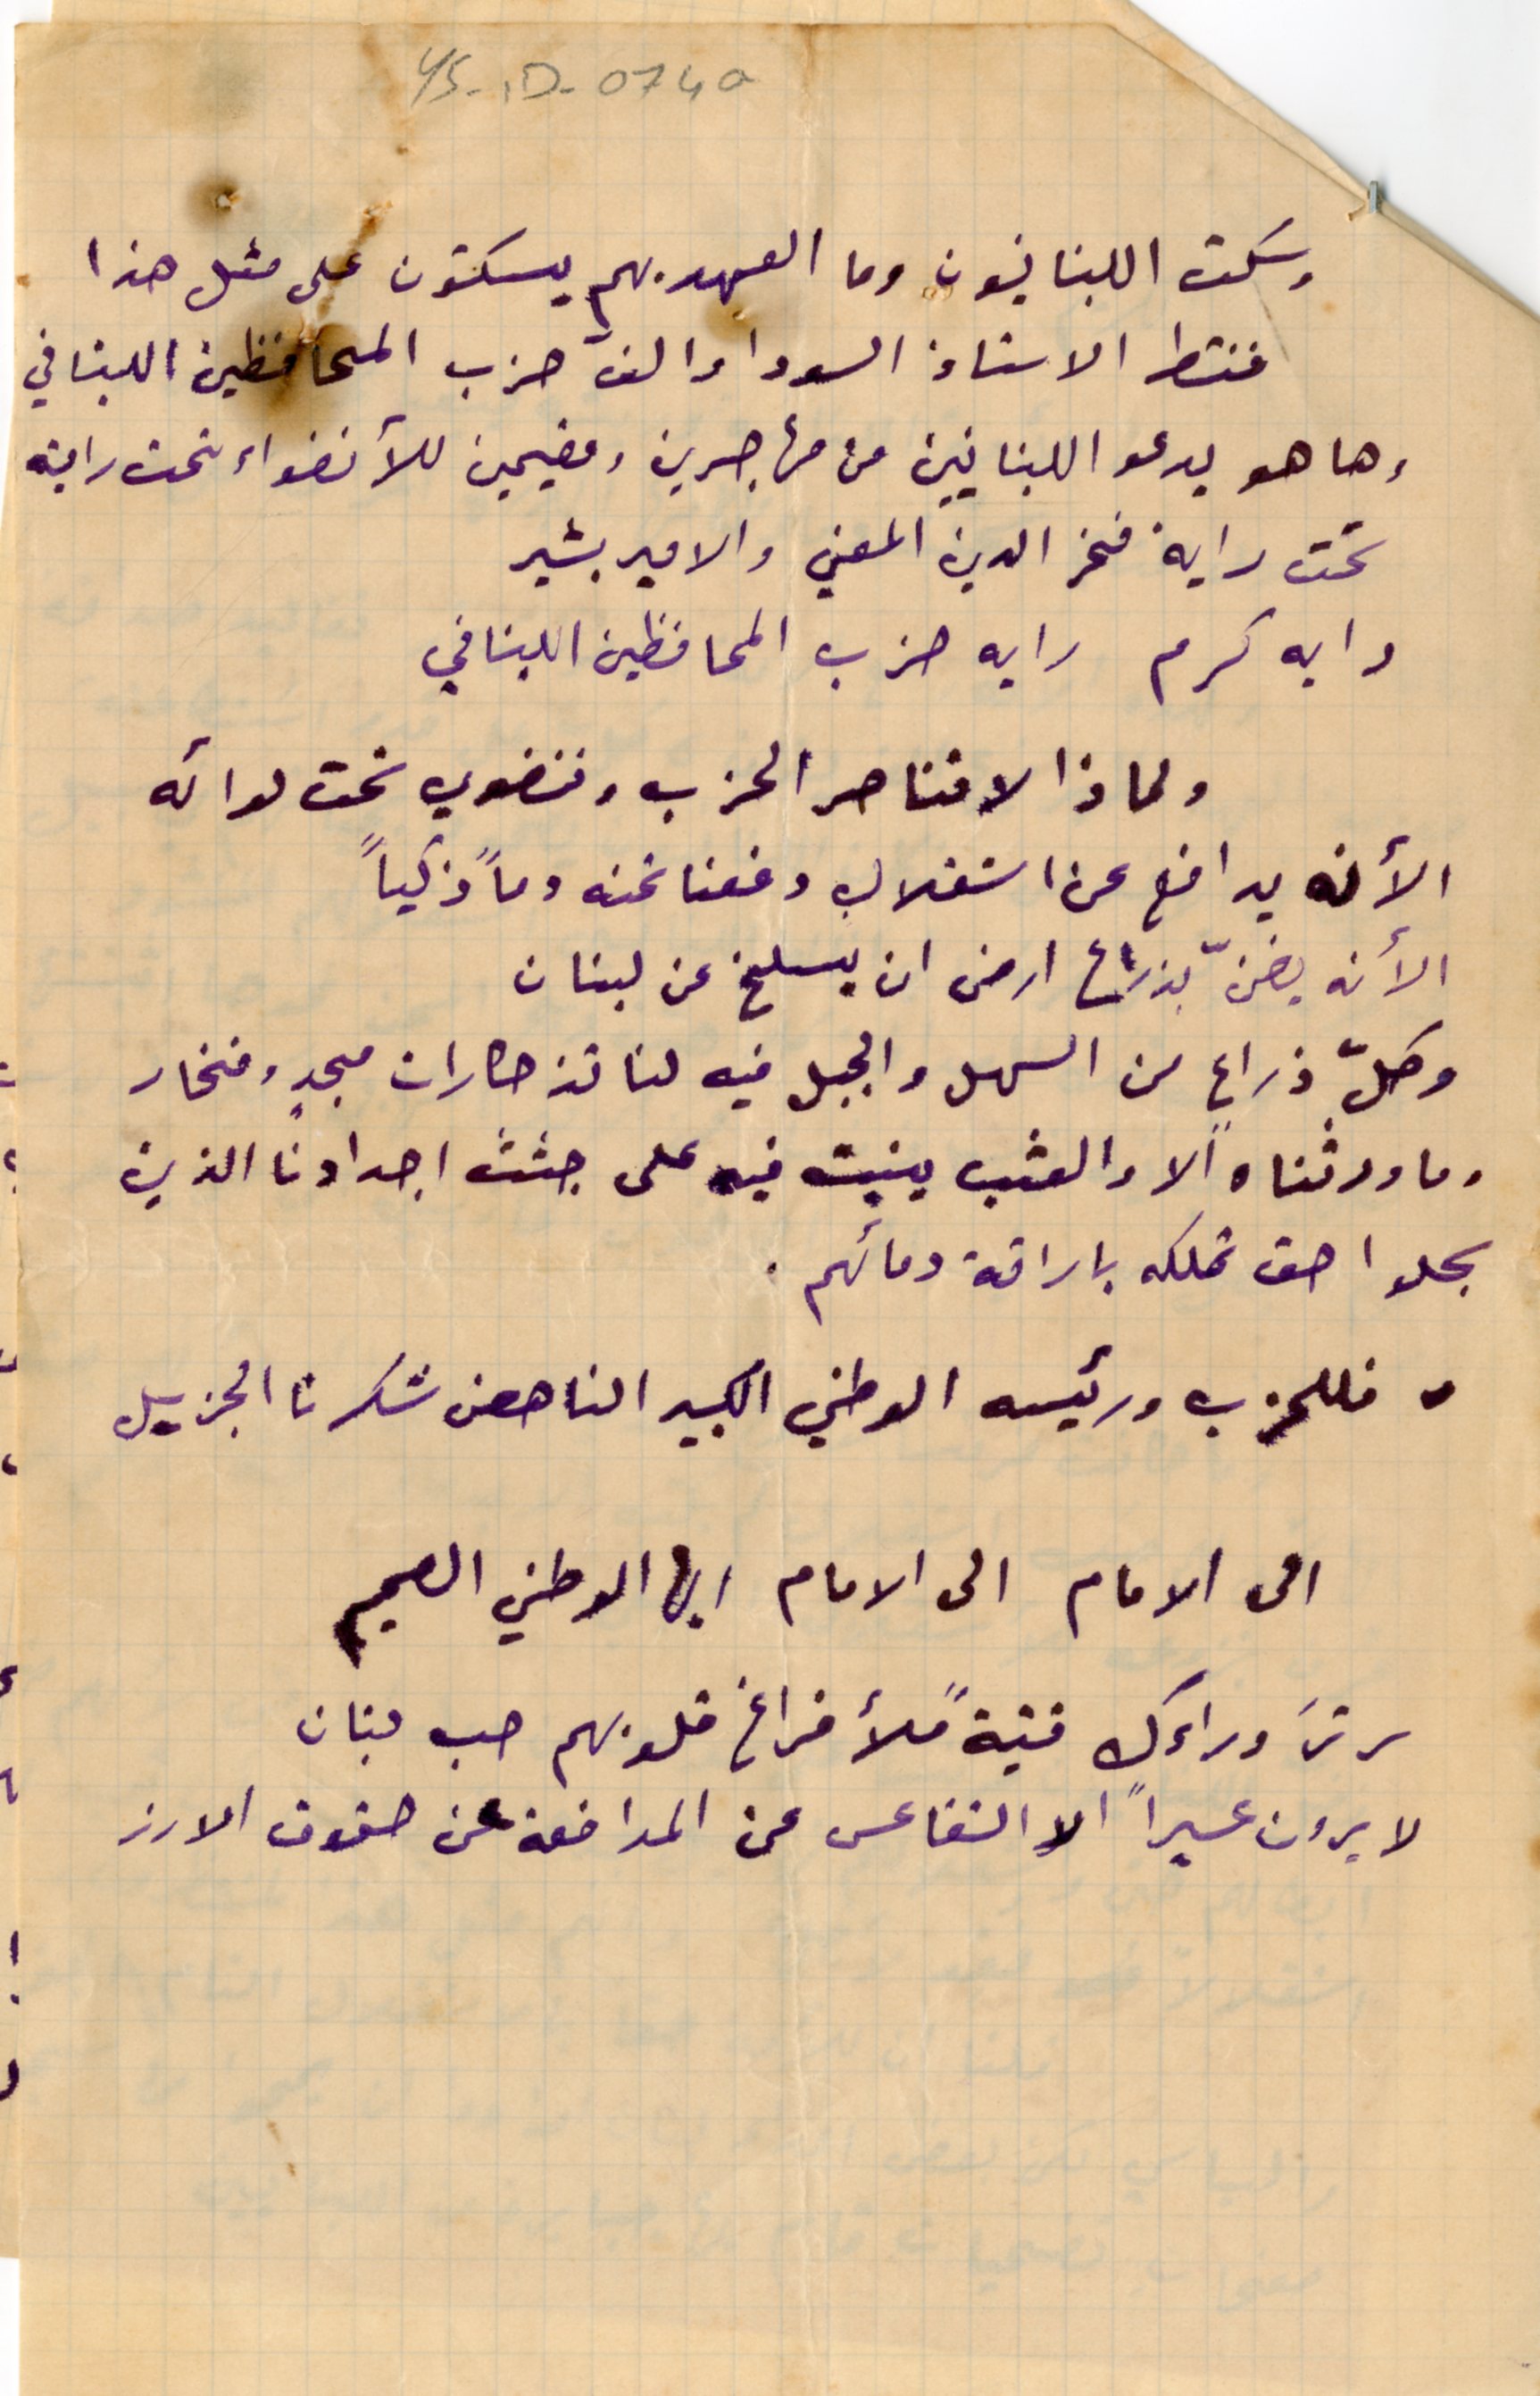 YS-1D-074a
وسكت اللبنانيون وما العهد بهم يسكتون على مثل هذا
فنشط الاستاذ السودا والفّ حزب المحافظين اللبناني
وها هو يدعو اللبنانيين من مهاجرين ومقيمين للأنضواء تحت رايته
تحت راية فخر الدين المعني والامير بشير
رايه كرم رايه حزب المحافظين اللبناني
ولماذا لا نناصر الحزب وننضوي تحت لوائه
الأنه يدافع عن استقلال دفعنا ثمنه دماً زكياً
الأنه يضنّ بذراع ارض ان يسلخ عن لبنان
وكلّ ذراعٍ من السهل والجبل فيه لنا تذكارات مجدٍ وفخار
وما ورثناه الا والعشب ينبت فيه على جثث اجدادنا الذين
سجلوا حق تملكه باراقة دمائهم .
فللحزب ورئيسه الوطني الكبير الناهض شكرنا الجزيل
الى الامام الى الامام ايها الوطني الصميم
سر ترَ وراءك فتيةً ملأ فراغ قلوبهم حب لبنان
لا يرون عسيراً الا التقاعس عن المدافعة عن حقوق الارز